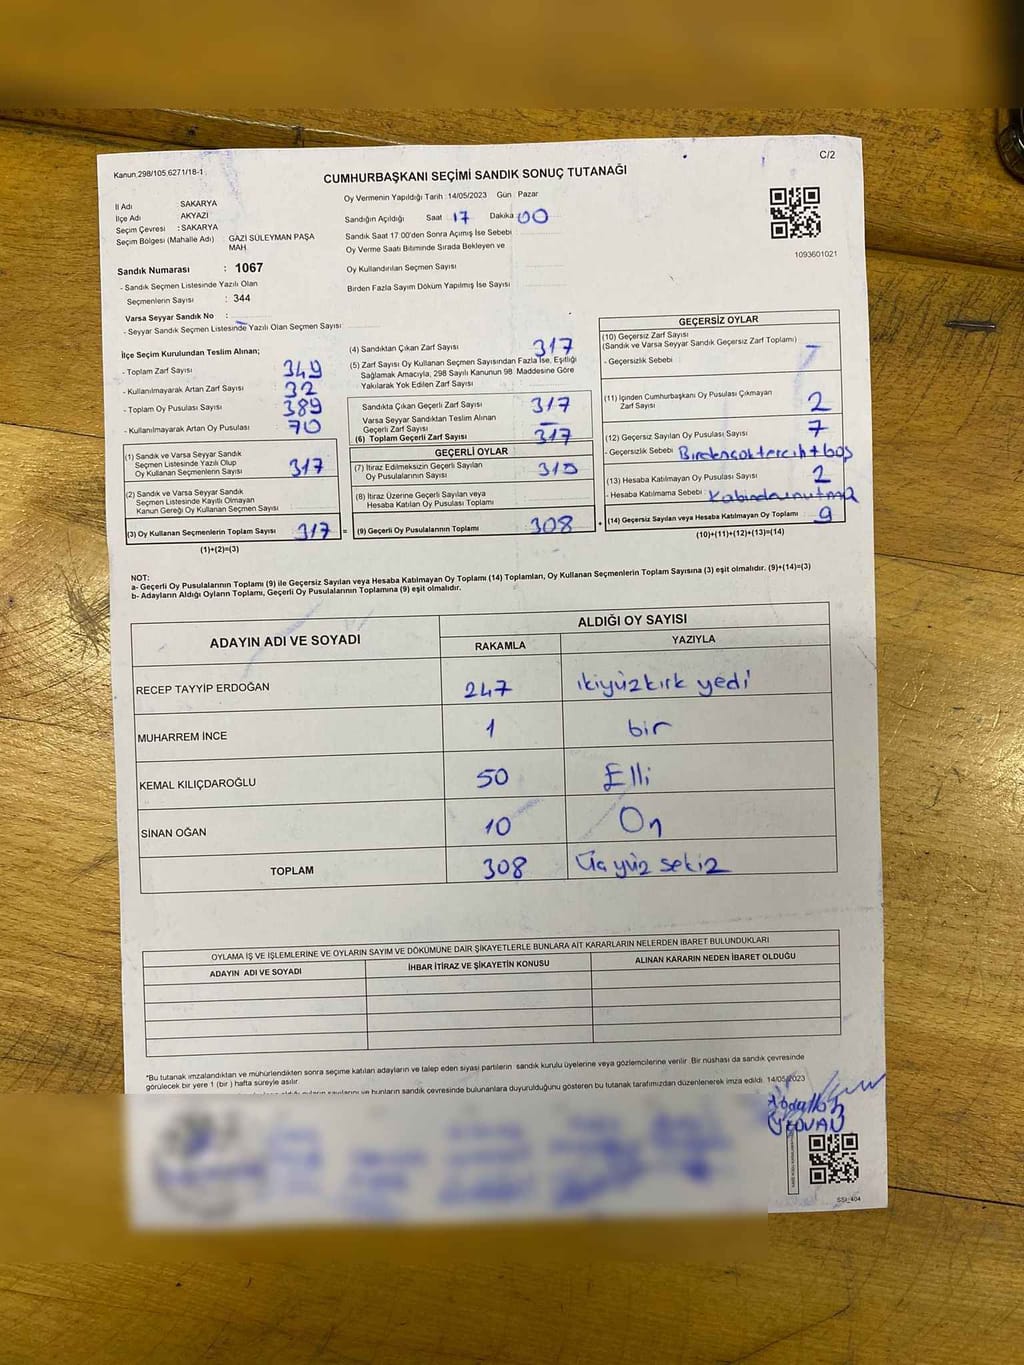 Kanun 298/105,6271/18-1
C/2
CUMHURBAŞKANI SEÇİMİ SANDIK SONUÇ TUTANAĞI
İl Adı : SAKARYA
İlçe Adı : AKYAZI
Seçim Çevresi : SAKARYA
Seçim Bölgesi (Mahalle Adı) : GAZİ SÜLEYMAN PAŞA
MAH.
Sandık Numarası : 1067
- Sandık Seçmen Listesinde Yazılı Olan
Seçmenlerin Sayısı : 344
Varsa Seyyar Sandık No :
- Seyyar Sandık Seçmen Listesinde Yazılı Olan Seçmen Sayısı:
Oy Vermenin Yapıldığı Tarih : 14/05/2023 Gün : Pazar
Sandığın Açıldığı Saat : 17 Dakika : 00
Sandık Saat 17:00'den Sonra Açılmış İse Sebebi :
Oy Verme Saati Bitiminde Sırada Bekleyen ve
Oy Kullandırılan Seçmen Sayısı
Birden Fazla Sayım Döküm Yapılmış İse Sayısı :
1093601021
İlçe Seçim Kurulundan Teslim Alınan;
- Toplam Zarf Sayısı : 349
- Kullanılmayarak Artan Zarf Sayısı : 32
- Toplam Oy Pusulası Sayısı : 389
- Kullanılmayarak Artan Oy Pusulası : 70
(1) Sandık ve Varsa Seyyar Sandık
Seçmen Listesinde Yazılı Olup
Oy Kullanan Seçmenlerin Sayısı : 317
(2) Sandık ve Varsa Seyyar Sandık
Seçmen Listesinde Kayıtlı Olmayan
Kanun Gereği Oy Kullanan Seçmen Sayısı :
(3) Oy Kullanan Seçmenlerin Toplam Sayısı : 317 =
(1)+(2)=(3)
(4) Sandıktan Çıkan Zarf Sayısı : 317
(5) Zarf Sayısı Oy Kullanan Seçmen Sayısından Fazla İse, Eşitliği
Sağlamak Amacıyla, 298 Sayılı Kanunun 98. Maddesine Göre
Yakılarak Yok Edilen Zarf Sayısı :
Sandıkta Çıkan Geçerli Zarf Sayısı : 317
Varsa Seyyar Sandıktan Teslim Alınan
Geçerli Zarf Sayısı : -
(6) Toplam Geçerli Zarf Sayısı : 317
GEÇERLİ OYLAR
(7) İtiraz Edilmeksizin Geçerli Sayılan
Oy Pusulalarının Sayısı :
(8) İtiraz Üzerine Geçerli Sayılan veya
Hesaba Katılan Oy Pusulası Toplamı :
(9) Geçerli Oy Pusulalarının Toplamı : 308 +
GEÇERSİZ OYLAR
(10) Geçersiz Zarf Sayısı
(Sandık ve Varsa Seyyar Sandık Geçersiz Zarf Toplamı) :
- Geçersizlik Sebebi :
(11) İçinden Cumhurbaşkanı Oy Pusulası Çıkmayan
Zarf Sayısı : 2
(12) Geçersiz Sayılan Oy Pusulası Sayısı : 7
- Geçersizlik Sebebi : Birdençoktercih+boş
(13) Hesaba Katılmayan Oy Pusulası Sayısı : 2
- Hesaba Katılmama Sebebi :
(14) Geçersiz Sayılan veya Hesaba Katılmayan Oy Toplamı : 9
(10)+(11)+(12)+(13)=(14)
NOT:
a- Geçerli Oy Pusulalarının Toplamı (9) ile Geçersiz Sayılan veya Hesaba Katılmayan Oy Toplamı (14) Toplamları, Oy Kullanan Seçmenlerin Toplam Sayısına (3) eşit olmalıdır. (9)+(14)=(3)
b- Adayların Aldığı Oyların Toplamı, Geçerli Oy Pusulalarının Toplamına (9) eşit olmalıdır.
ADAYIN ADI VE SOYADI
ALDIĞI OY SAYISI
RAKAMLA YAZIYLA
RECEP TAYYİP ERDOĞAN 247 ikiyüzkırk yedi
MUHARREM İNCE 1 bir
KEMAL KILIÇDAROĞLU 50 Elli
SİNAN OĞAN 10 On
TOPLAM 308 Üçyüz sekiz
OYLAMA İŞ VE İŞLEMLERİNE VE OYLARIN SAYIM VE DÖKÜMÜNE DAİR ŞİKAYETLERLE BUNLARA AİT KARARLARIN NELERDEN İBARET BULUNDUKLARI
ADAYIN ADI VE SOYADI İHBAR İTİRAZ VE ŞİKAYETİN KONUSU ALINAN KARARIN NEDEN İBARET OLDUĞU
*Bu tutanak imzalandıktan ve mühürlendikten sonra seçime katılan adayların ve talep eden siyasi partilerin sandık kurulu üyelerine veya gözlemcilerine verilir. Bir nüshası da sandık çevresinde
görülecek bir yere 1 (bir) hafta süreyle asılır.
oyların sayılarını ve bunların sandık çevresinde bulunanlara duyurulduğunu gösteren bu tutanak tarafımızdan düzenlenerek imza edildi. 14/05/2023
Abdullah
SSI_404